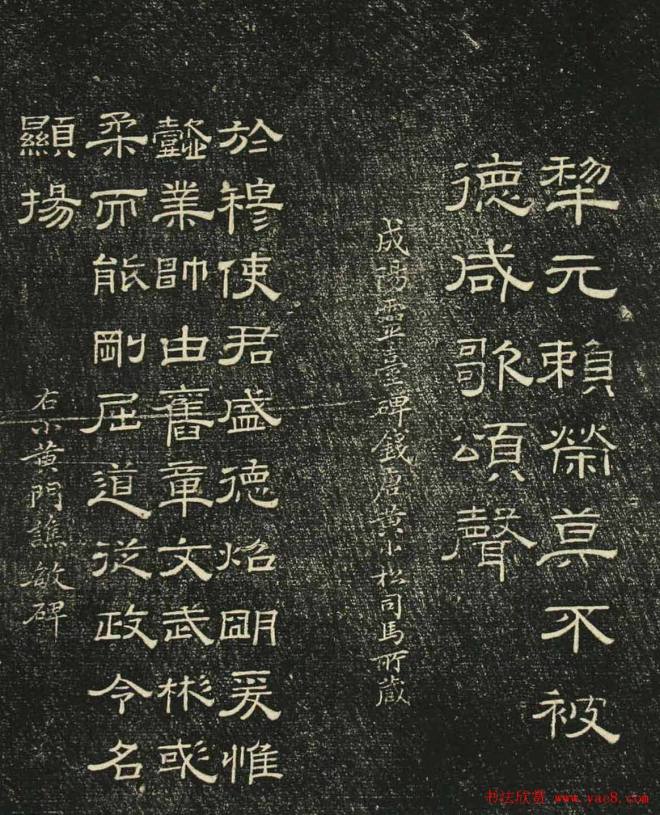 犂元賴榮莫不被
德咸歌頌聲
成陽靈臺碑錢唐黃小松司馬所藏
於穆使君盛德炤明爰惟
懿業帥由舊章文武彬彧
柔而能剛屈道從政令名
顯揚
右小黃門譙敏碑
书法欣赏 www.yac8.com